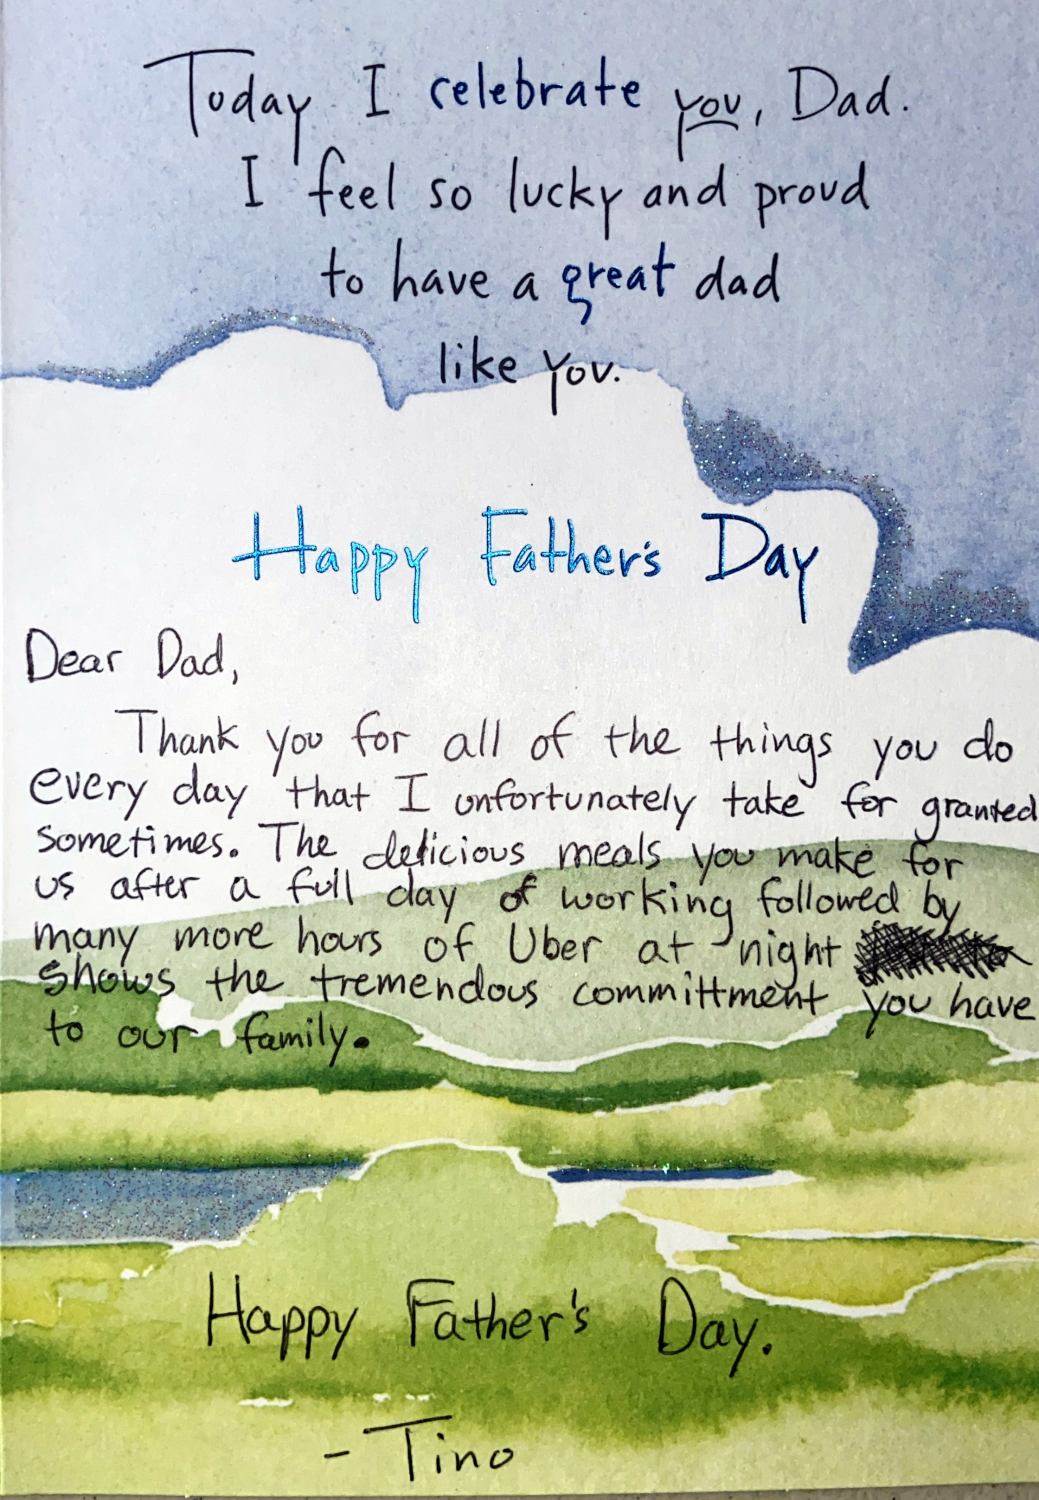 Today I celebrate you, Dad.
I feel so lucky and proud
to have a great dad
like you.
Happy Father's Day
Dear Dad,
Thank you for all of the things you do
every day that I unfortunately take for granted
sometimes. The delicious meals you make for
us after a full day of working followed by
many more hours of Uber at night
shows the tremendous committment you have
to our family.
Happy Father's Day.
- Tino